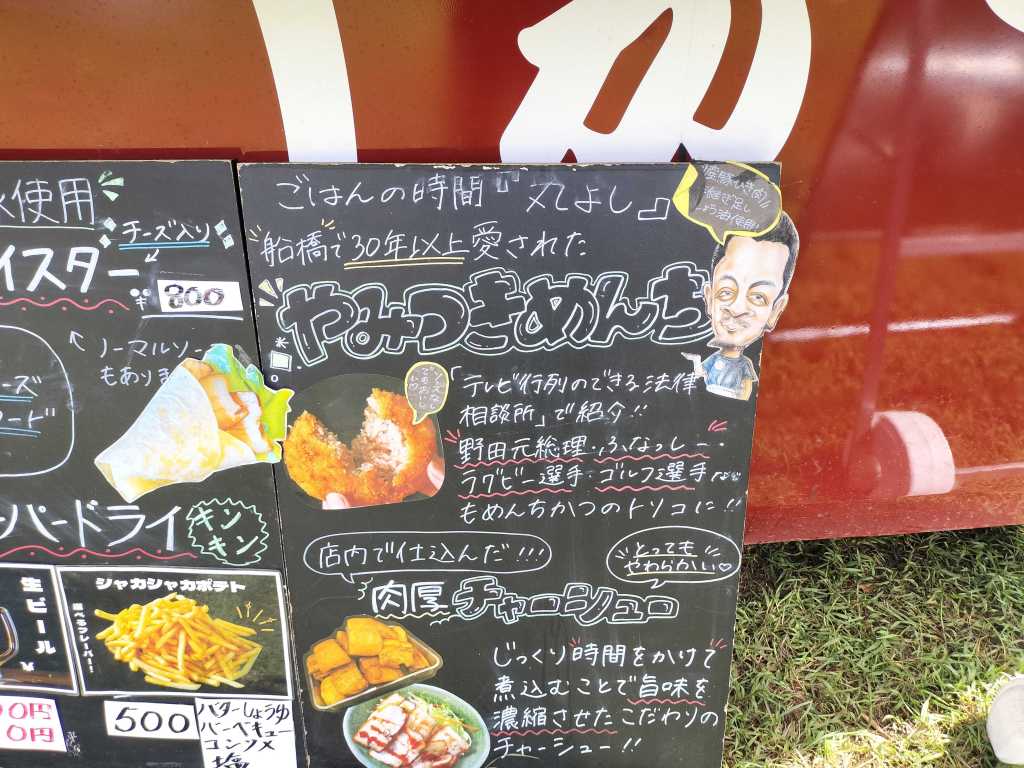 使用
チーズ入り
イスター
¥800
ノーマルソー
もありま
ーズ
ード
パードライ
キン
キン
生ビール
¥
シャカシャカポテト
選べるフレーバー!!
0円
0円
500
バターしょうゆ
バーベキュー
コンソメ
塩
ごはんの時間『丸よし』
船橋で30年以上愛された
やみつきめんち
「テレビ行列のできる法律
相談所」で紹介!!
野田元総理・ふなっしー・
ラグビー選手・ゴルフ選手など
もめんちかつのトリコに!!
店内で仕込んだ!!!
とっても
やわらかい♡
肉厚チャーシュー
じっくり時間をかけて
煮込むことで旨味を
濃縮させたこだわりの
チャーシュー!!